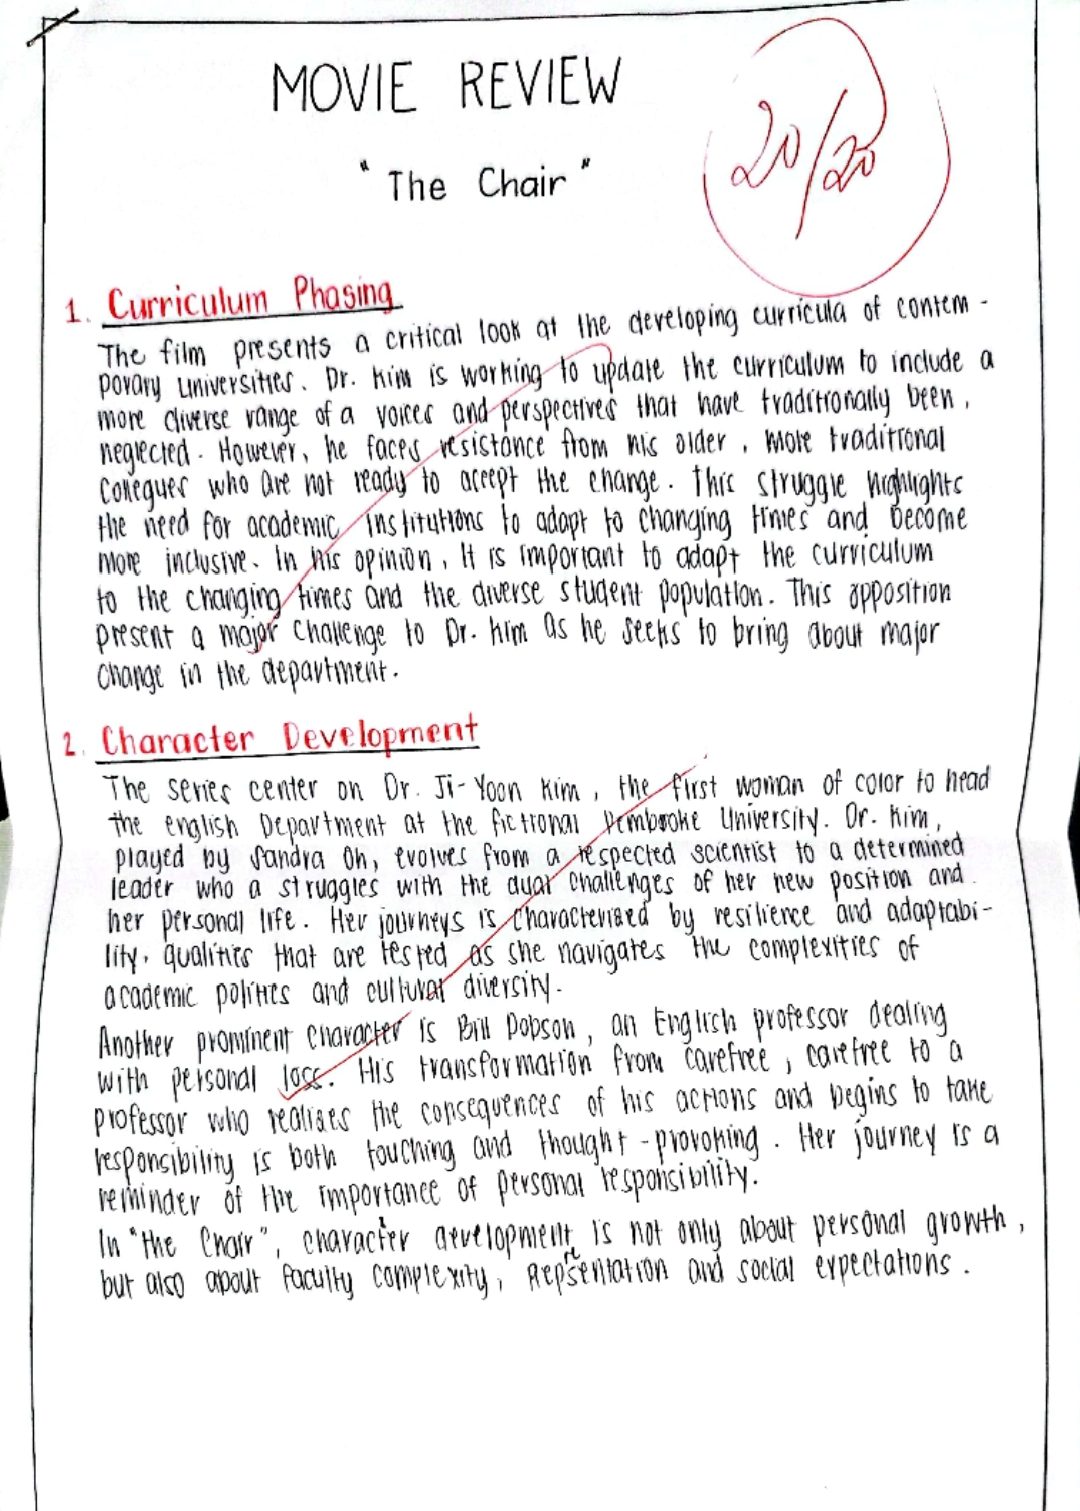 MOVIE REVIEW
20/20
"The Chair"
1. Curriculum Phasing
The film presents a critical look at the developing curricula of contem-
porary universities. Dr. Kim is working to update the curriculum to include a
more diverse range of a voices and perspectives that have traditionally been,
neglected. However, he faces resistance from his older, more traditional
collegues who are not ready to accept the change. This struggle highlights
the need for academic institutions to adapt to changing times and become
more inclusive. In his opinion, It is important to adapt the curriculum
to the changing times and the diverse student population. This opposition
present a major challenge to Dr. Kim as he seeks to bring about major
change in the department.
2. Character Development
The series center on Dr. Ji-Yoon Kim, the first woman of color to head
the english Department at the fictional Pembroke University. Dr. Kim,
played by Sandra Oh, evolves from a respected scientist to a determined
leader who a struggles with the dual challenges of her new position and
her personal life. Her journeys is characterized by resilience and adaptabi-
lity, qualities that are tested as she navigates the complexities of
academic politics and cultural diversity.
Another prominent character is Bill Dobson, an English professor dealing
with personal loss. His transformation from carefree, carefree to a
professor who realizes the consequences of his actions and begins to take
responsibility is both touching and thought-provoking. Her journey is a
reminder of the importance of personal responsibility.
In "the Chair", character development is not only about personal growth,
but also about faculty complexity, Representation and social expectations.